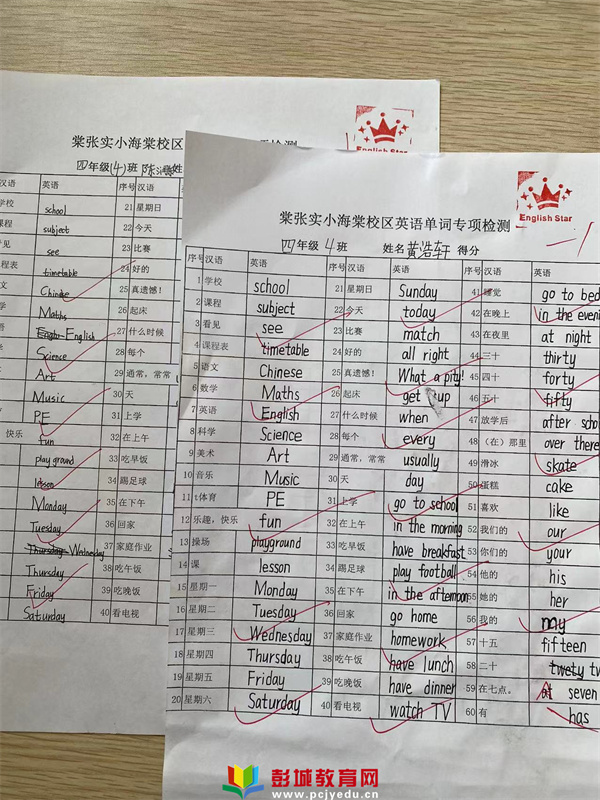 棠张实小海棠校区
English Star
四年级(4)班
汉语 英语 序号 汉语
学校 school 21 星期日
课程 subject 22 今天
看见 see 23 比赛
程表 timetable 24 好的
Chinese 25 真遗憾!
Maths 26 起床
English 27 什么时候
Science 28 每个
Art 29 通常，常常
Music 30 天
PE 31 上学
快乐 fun 32 在上午
playground 33 吃早饭
lesson 34 踢足球
Monday 35 在下午
Tuesday 36 回家
Thursday Wednesday 37 家庭作业
Thursday 38 吃午饭
Friday 39 吃晚饭
Saturday 40 看电视
English Star
棠张实小海棠校区英语单词专项检测
四年级 4班 姓名 黄浩轩 得分 -1
序号 汉语 英语 序号 汉语 英语 序号 汉语 英语
1 学校 school 21 星期日 Sunday 41 睡觉 go to bed
2 课程 subject 22 今天 today 42 在晚上 in the eveni
3 看见 see 23 比赛 match 43 在夜里 at night
4 课程表 timetable 24 好的 all right 44 三十 thirty
5 语文 Chinese 25 真遗憾! What a pity! 45 四十 forty
6 数学 Maths 26 起床 get up 46 五十 fifty
7 英语 English 27 什么时候 when 47 放学后 after scho
8 科学 Science 28 每个 every 48 （在）那里 over there
9 美术 Art 29 通常，常常 usually 49 滑冰 skate
10 音乐 Music 30 天 day 50 蛋糕 cake
11 t体育 PE 31 上学 go to school 51 喜欢 like
12 乐趣，快乐 fun 32 在上午 in the morning 52 我们的 our
13 操场 playground 33 吃早饭 have breakfast 53 你们的 your
14 课 lesson 34 踢足球 play football 54 他的 his
15 星期一 Monday 35 在下午 in the afternoon 55 她的 her
16 星期二 Tuesday 36 回家 go home 56 我的 my
17 星期三 Wednesday 37 家庭作业 homework 57 十五 fifteen
18 星期四 Thursday 38 吃午饭 have lunch 58 二十 twety tw
19 星期五 Friday 39 吃晚饭 have dinner 59 在七点。 at seven
20 星期六 Saturday 40 看电视 watch TV 60 有 has
彭城教育网
www.pcjyedu.cn